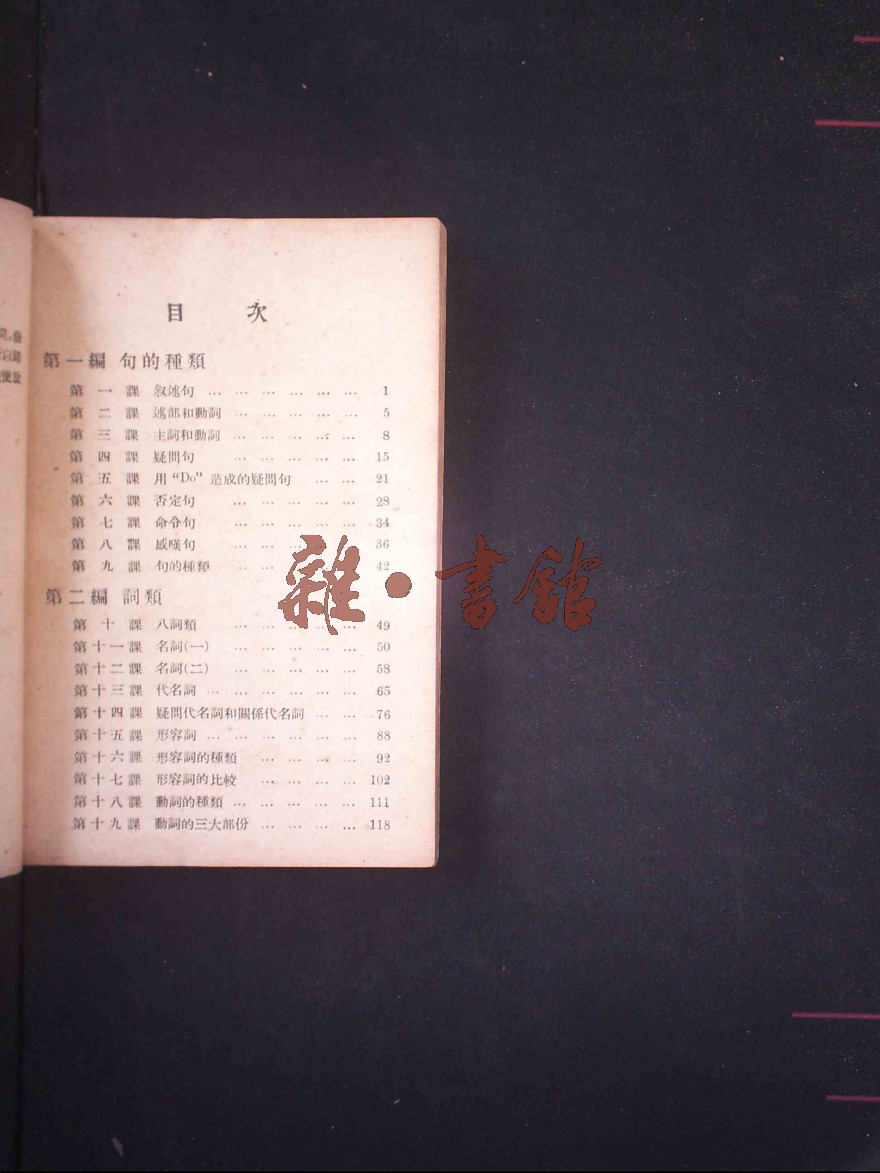 目 次
第一編 句的種類
第一課 敘述句 … … … … … … 1
第二課 述部和動詞 … … … … … 5
第三課 主詞和動詞 … … … … … 8
第四課 疑問句 … … … … … 15
第五課 用“Do”造成的疑問句 … … 21
第六課 否定句 … … … … … 28
第七課 命令句 … … … … … 34
第八課 感嘆句 … … … … … 36
第九課 句的種類 … … … … … 42
第二編 詞類
第十課 八詞類 … … … … … 49
第十一課 名詞(一) … … … … … 50
第十二課 名詞(二) … … … … … 58
第十三課 代名詞 … … … … … … 65
第十四課 疑問代名詞和關係代名詞 … … 76
第十五課 形容詞 … … … … … … 88
第十六課 形容詞的種類 … … … … 92
第十七課 形容詞的比較 … … … … 102
第十八課 動詞的種類 … … … … … 111
第十九課 動詞的三大部份 … … … … 118
雜·書館